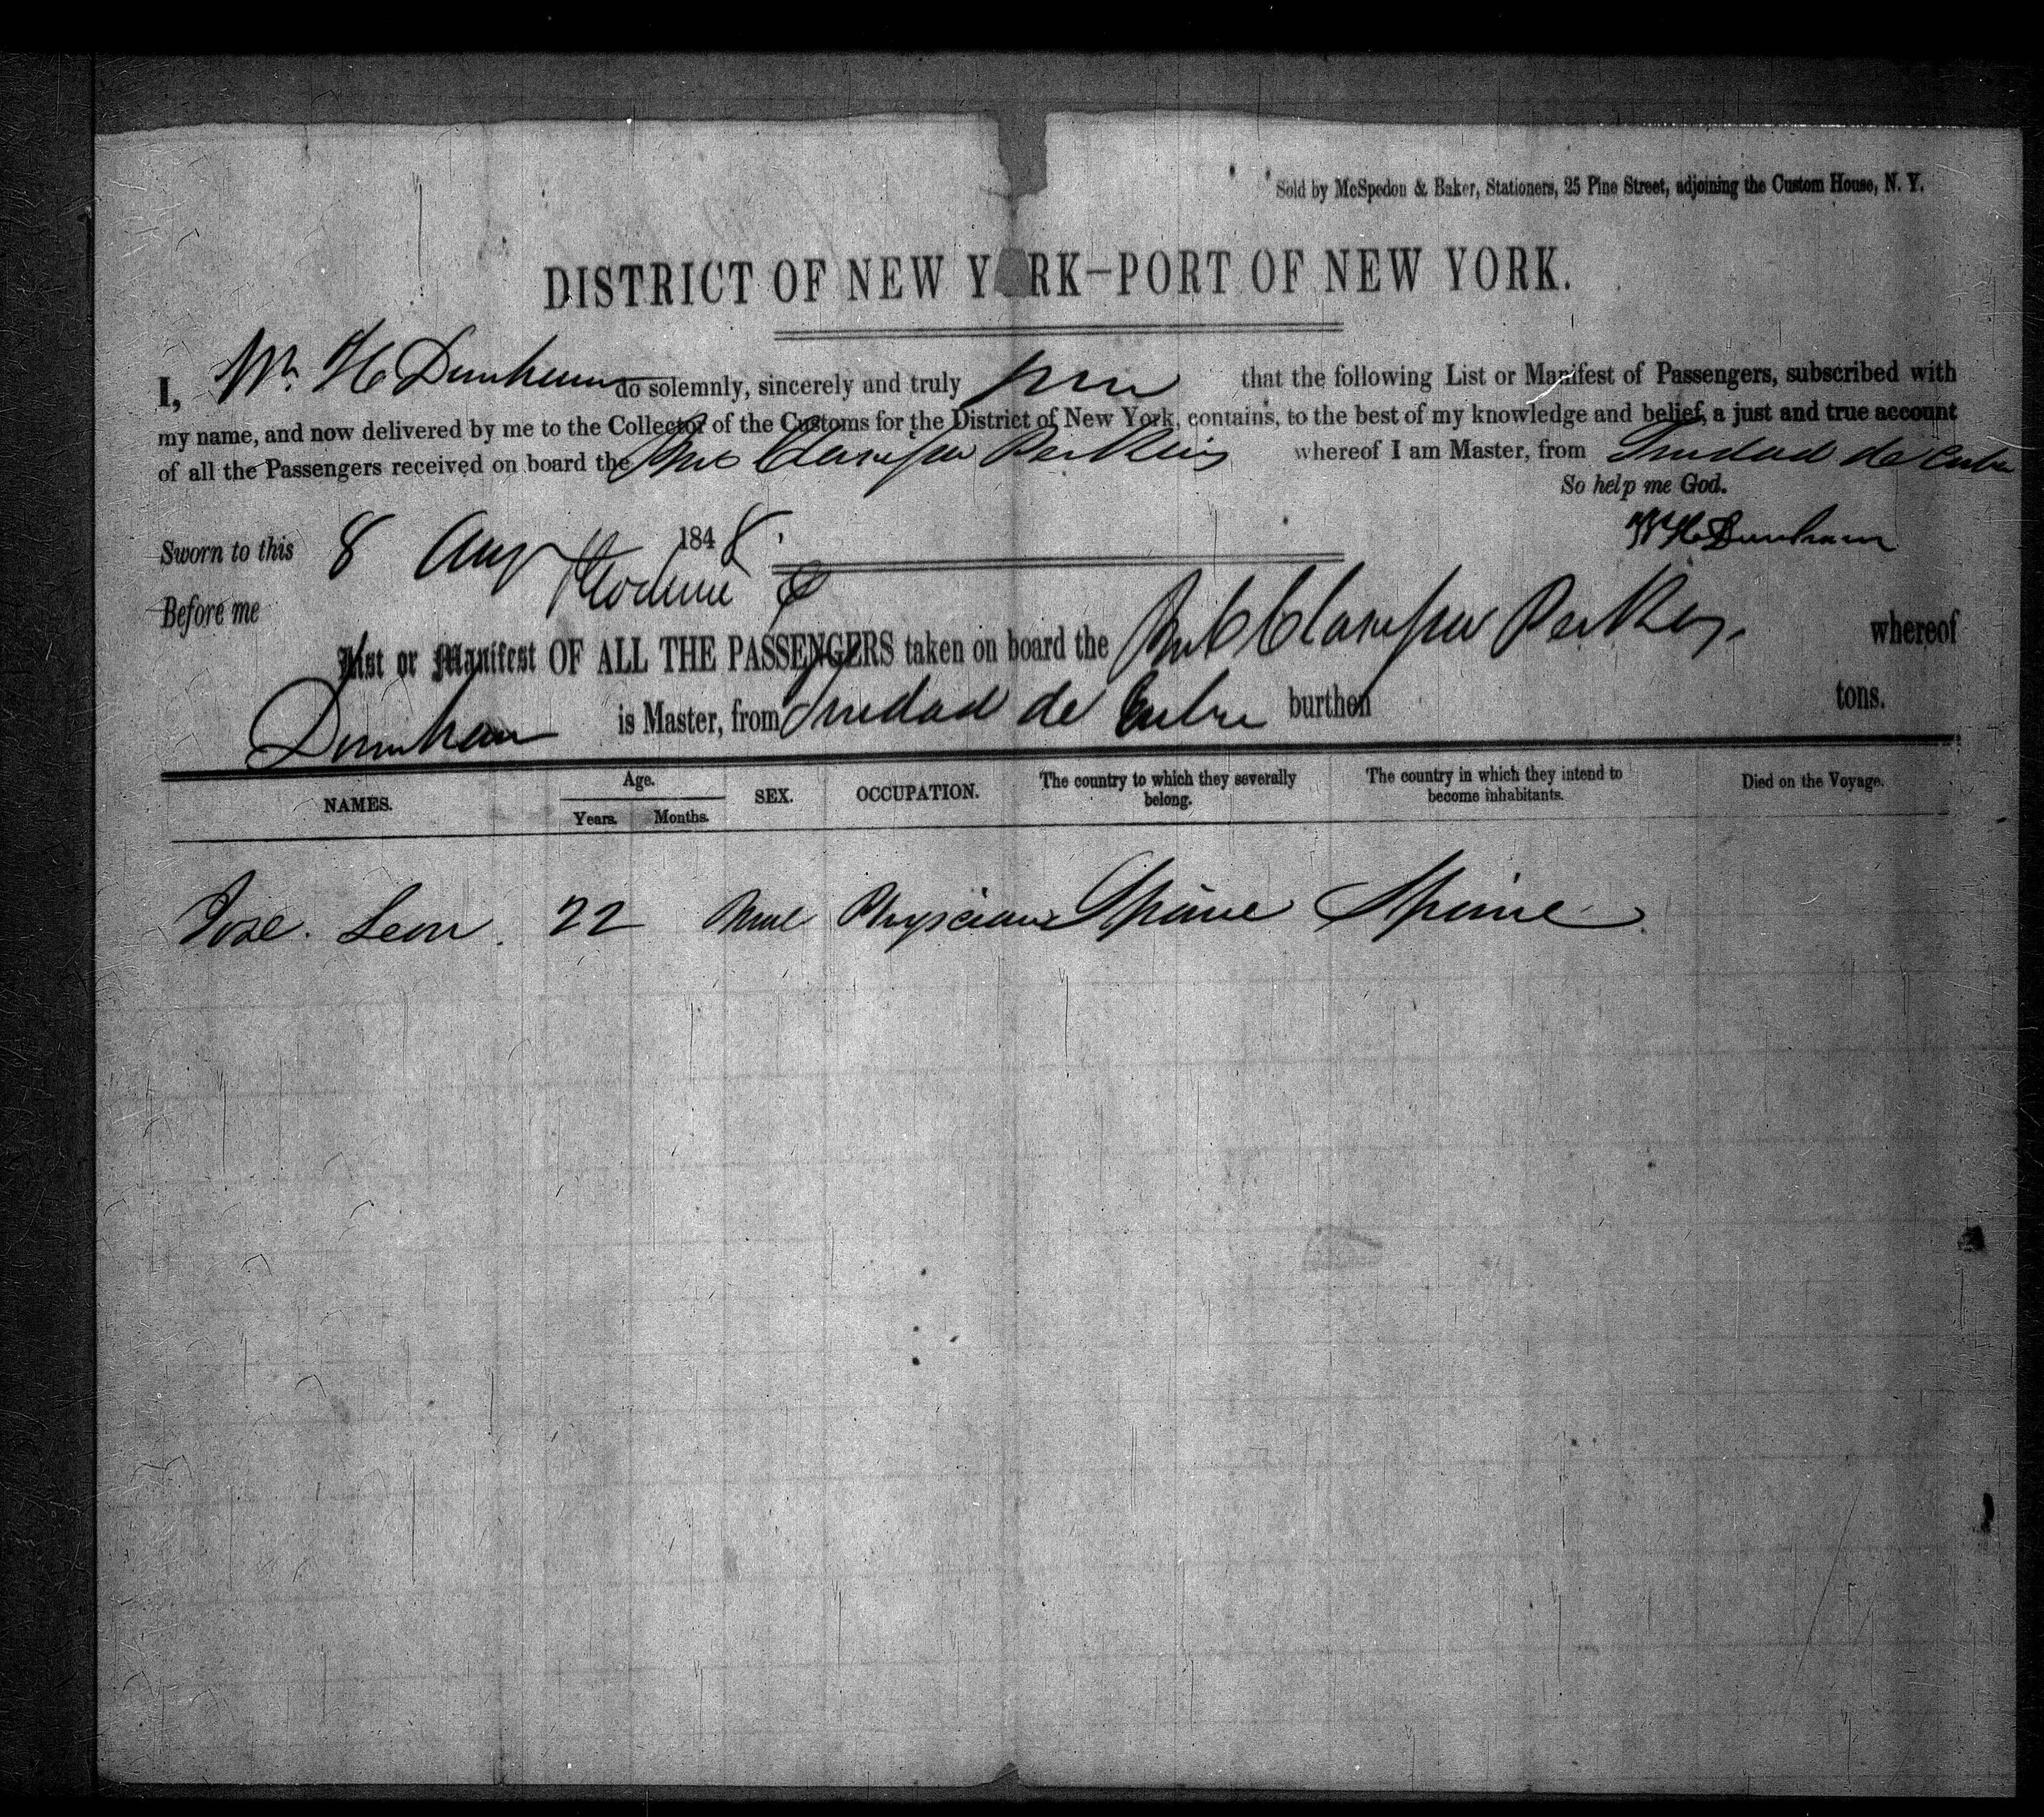 Sold by McSpedon & Baker, Stationers, 25 Pine Street, adjoining the Custom House, N. Y.
DISTRICT OF NEW Y RK—PORT OF NEW YORK.
I, Wm H Dunham do solemnly, sincerely and truly that the following List or Manifest of Passengers, subscribed with
my name, and now delivered by me to the Collector of the Customs for the District of New York, contains, to the best of my knowledge and belief, a just and true account
of all the Passengers received on board the Clarissa Perkins whereof I am Master, from Trinidad de Cuba
So help me God.
Sworn to this 8 Aug 1848. W H Dunham
Before me
List or Manifest OF ALL THE PASSENGERS taken on board the Clarissa Perkins whereof
Dunham is Master, from Trinidad de Cuba burthen tons.
NAMES. Age. Years. Months. SEX. OCCUPATION. The country to which they severally belong. The country in which they intend to become inhabitants. Died on the Voyage.
Jose Leon. 22 Male Physician Spain Spain